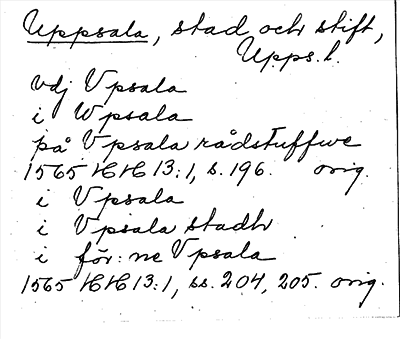 Uppsala, stad och stift,
Upps. l.
vdj Vpsala
i Wpsala
på Vpsala rådstuffwe
1565 HH 13:1, s. 196. orig.
i Vpsala
i Vpsala stadh
i för:ne Vpsala
1565 HH 13:1, ss. 204, 205. orig.